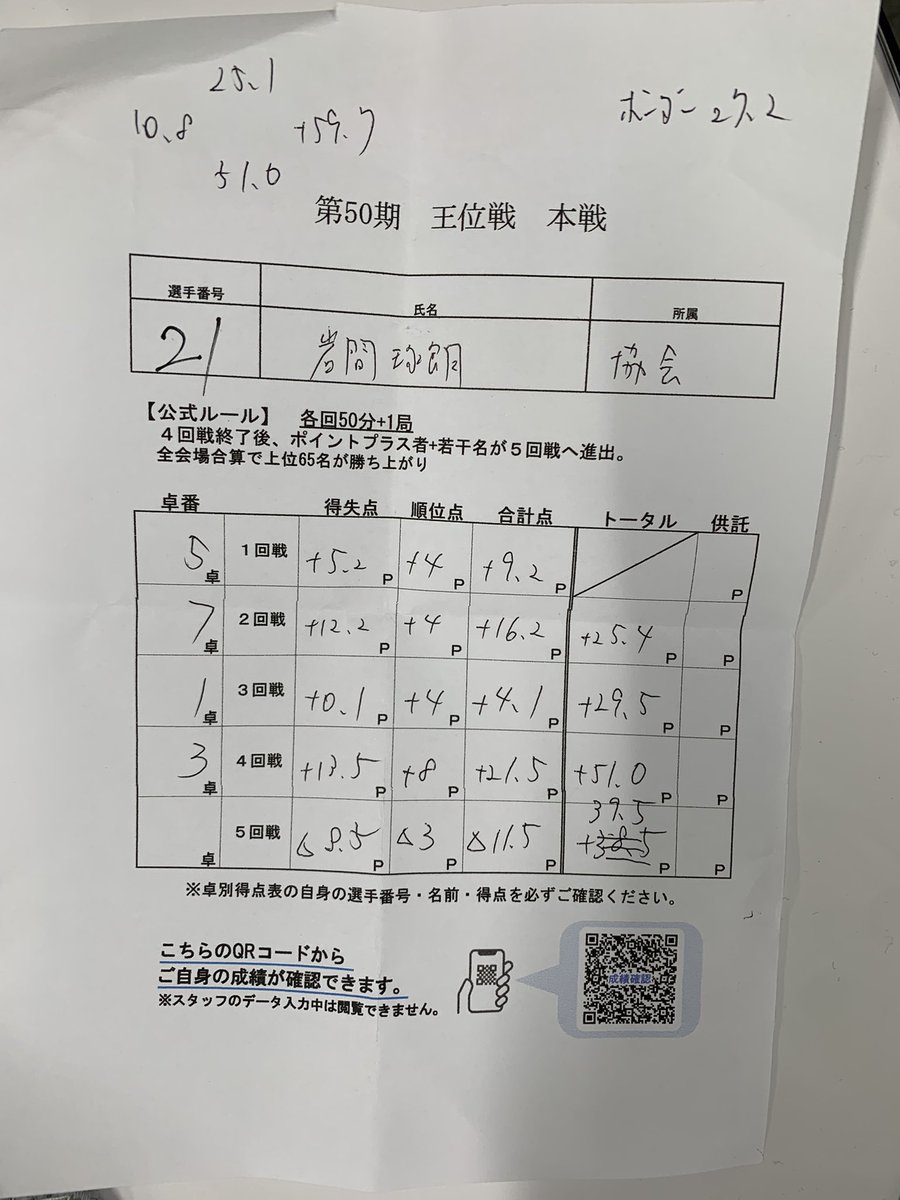 25.1
10.8 +59.7 ボーダー 27.2
51.0
第50期 王位戦 本戦
選手番号 氏名 所属
21 岩間 琢朗 協会
【公式ルール】 各回50分+1局
４回戦終了後、ポイントプラス者+若干名が５回戦へ進出。
全会場合算で上位65名が勝ち上がり
卓番 得失点 順位点 合計点 トータル 供託
5卓 1回戦 +5.2P +4P +9.2P P
7卓 2回戦 +12.2P +4P +16.2P +25.4P P
1卓 3回戦 +0.1P +4P +4.1P +29.5P P
3卓 4回戦 +13.5P +8P +21.5P +51.0P P
39.5
卓 5回戦 △8.5P △3P △11.5P P P
※卓別得点表の自身の選手番号・名前・得点を必ずご確認ください。
こちらのQRコードから
ご自身の成績が確認できます。
※スタッフのデータ入力中は閲覧できません。
成績確認